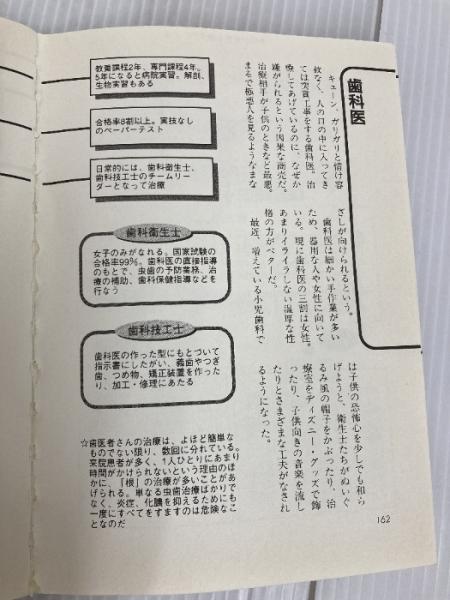 歯科医
キューン、ガリガリと情け容
赦なく、人の口の中に入ってき
ては突貫工事をする歯科医。治
療してあげているのに、なぜか
嫌がられるという因果な商売だ。
治療相手が子供のときなど最悪。
まるで極悪人を見るようなまな
ざしが向けられるという。
歯科医は細かい手作業が多い
ため、器用な人や女性に向いて
いる。現に歯科医の三割は女性。
あまりイライラしない温厚な性
格の方がベターだ。
最近、増えている小児歯科で
は子供の恐怖心を少しでも和ら
げようと、衛生士たちがぬいぐ
るみ風の帽子をかぶったり、治
療室をディズニー・グッズで飾
ったり、子供向きの音楽を流し
たりとさまざまな工夫がなされ
るようになった。
教養課程2年、専門課程4年。
5年になると病院実習。解剖、
生物実習もある
合格率8割以上。実技なし
のペーパーテスト
日常的には、歯科衛生士、
歯科技工士のチームリー
ダーとなって治療
歯科衛生士
女子のみがなれる。国家試験の
合格率99%。歯科医の直接指導
のもとで、虫歯の予防業務、治
療の補助、歯科保健指導などを
行なう
歯科技工士
歯科医の作った型にもとづいて
指示書にしたがい、義歯やつぎ
歯、つめ物、矯正装置を作った
り、加工・修理にあたる
☆歯医者さんの治療は、よほど簡単な
ものでない限り、数回に分れている。
来院患者が多く、1人ひとりにあまり
時間がかけられないという理由のほ
かに、「根」の治療が多いことがあ
げられる。単なる虫歯治療ばかりで
なく、炎症、化膿を抑えるためにも
一度にすべてをすますのは危険なこ
となのだ
162